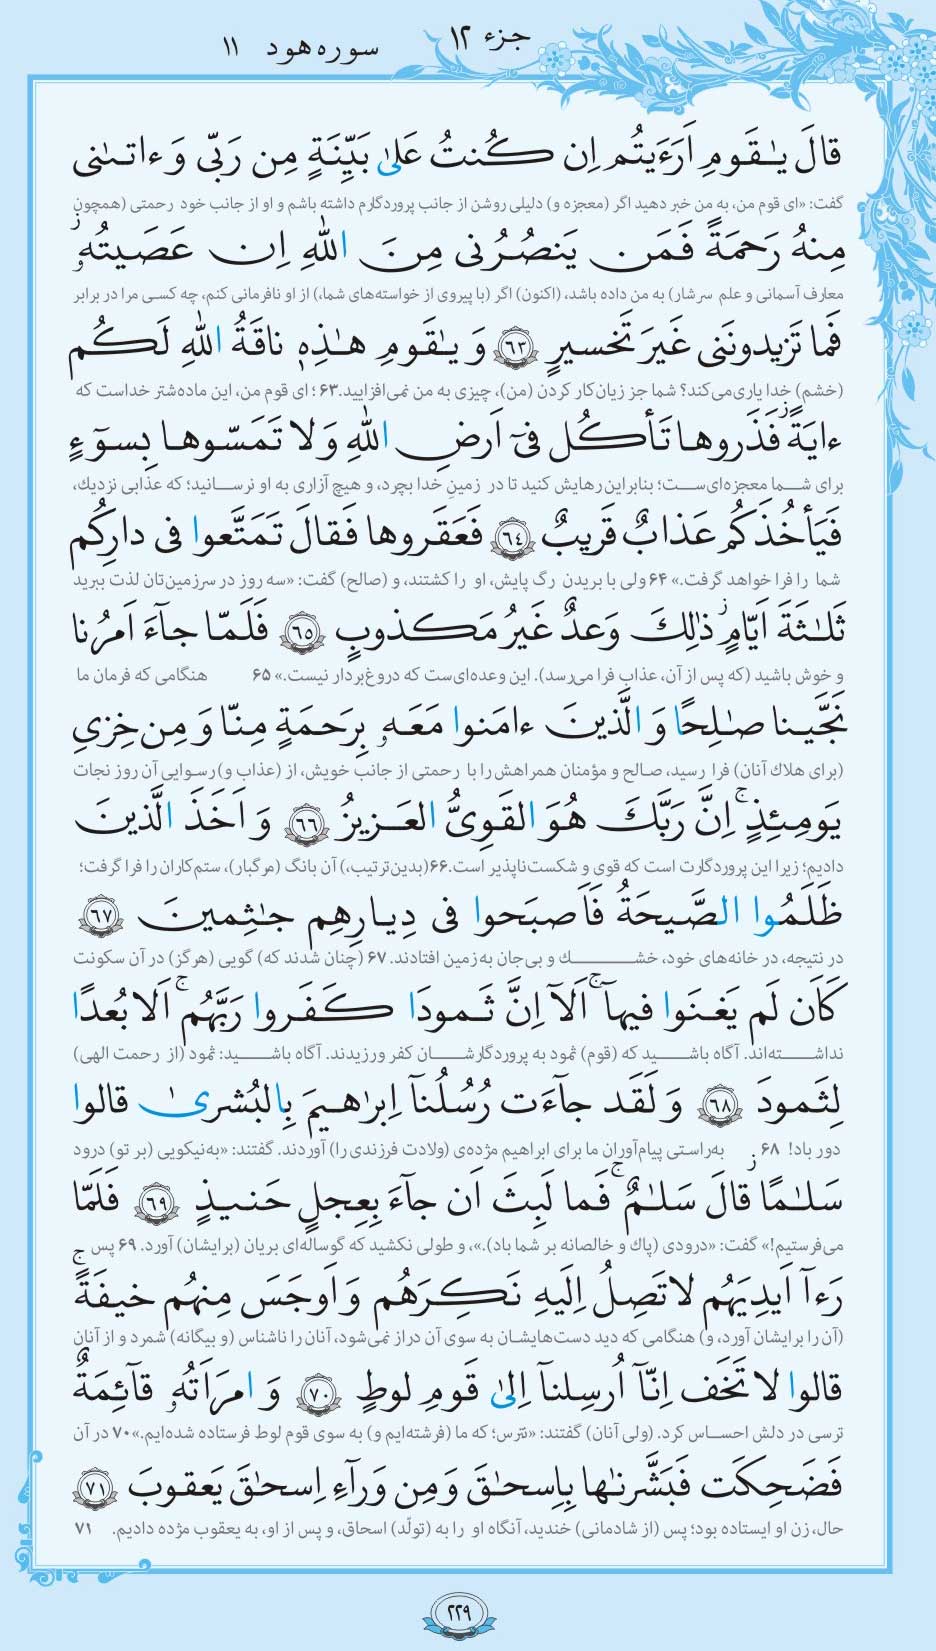 جزء ۱۲
سوره هود ۱۱
قالَ يـٰقَومِ اَرَءَيتُم اِن كُنتُ عَلىٰ بَيِّنَةٍ مِن رَبّى وَ ءاتىٰنى
گفت: «ای قوم من، به من خبر دهید اگر (معجزه و) دلیلی روشن از جانب پروردگارم داشته باشم و او از جانب خود رحمتی (همچون
مِنهُ رَحمَةً فَمَن يَنصُرُنى مِنَ اللّٰهِ اِن عَصَيتُهُ ۥ ز
معارف آسمانی و علم سرشار) به من داده باشد، (اکنون) اگر (با پیروی از خواسته‌های شما،) از او نافرمانی کنم، چه کسی مرا در برابر
فَما تَزيدونَنى غَيرَ تَخسيرٍ ﴿۶۳﴾ وَ يـٰقَومِ هـٰذِهٖ ناقَةُ اللّٰهِ لَكُم
(خشم) خدا یاری می‌کند؟ شما جز زیان‌کار کردن (من)، چیزی به من نمی‌افزایید. ۶۳؛ ای قوم من، این ماده‌شتر خداست که
ءايَةً ز فَذَروها تَأكُل فىٓ اَرضِ اللّٰهِ وَ لا تَمَسّوها بِسوٓءٍ
برای شما معجزه‌ای‌ست؛ بنابراین رهایش کنید تا در زمینِ خدا بچرد، و هیچ آزاری به او نرسانید؛ که عذابی نزدیك،
فَيَأخُذَكُم عَذابٌ قَريبٌ ﴿۶۴﴾ فَعَقَروها فَقالَ تَمَتَّعوا فى دارِكُم
شما را فرا خواهد گرفت.» ۶۴ ولی با بریدن رگ پایش، او را کشتند، و (صالح) گفت: «سه روز در سرزمین‌تان لذت ببرید
ثَلـٰثَةَ اَيّامٍ ز ذٰلِكَ وَعدٌ غَيرُ مَكذوبٍ ﴿۶۵﴾ فَلَمّا جآءَ اَمرُنا
و خوش باشید (که پس از آن، عذاب فرا می‌رسد). این وعده‌ای‌ست که دروغ‌بردار نیست.» ۶۵ هنگامی که فرمان ما
نَجَّينا صـٰلِحًا وَ الَّذينَ ءامَنوا مَعَهُ ۥ بِرَحمَةٍ مِنّا وَ مِن خِزىِ
(برای هلاك آنان) فرا رسید، صالح و مؤمنان همراهش را با رحمتی از جانب خویش، از (عذاب و) رسوایی آن روز نجات
يَومِئِذٍ ج اِنَّ رَبَّكَ هُوَ القَوِىُّ العَزيزُ ﴿۶۶﴾ وَ اَخَذَ الَّذينَ
دادیم؛ زیرا این پروردگارت است که قوی و شکست‌ناپذیر است. ۶۶ (بدین‌ترتیب،) آن بانگ (مرگبار)، ستم‌کاران را فرا گرفت؛
ظَلَمُوا الصَّيحَةُ فَاَصبَحوا فى دِيـارِهِم جـٰثِمينَ ﴿۶۷﴾
در نتیجه، در خانه‌های خود، خشك و بی‌جان به زمین افتادند. ۶۷ (چنان شدند که) گویی (هرگز) در آن سکونت
كَاَن لَم يَغنَوا فيهآ ج اَلآ اِنَّ ثَمودَا كَفَروا رَبَّهُم ج اَلا بُعدًا
نداشته‌اند. آگاه باشید که (قوم) ثمود به پروردگارشان کفر ورزیدند. آگاه باشید: ثمود (از رحمت الهی)
لِثَمودَ ﴿۶۸﴾ وَ لَقَد جآءَت رُسُلُنآ اِبرٰهيمَ بِالبُشرىٰ قالوا
دور باد! ۶۸ به‌راستی پیام‌آوران ما برای ابراهیم مژده‌ی (ولادت فرزندی را) آوردند. گفتند: «به‌نیکویی (بر تو) درود
سَلـٰمًا ز قالَ سَلـٰمٌ ج فَما لَبِثَ اَن جآءَ بِعِجلٍ حَنيذٍ ﴿۶۹﴾ فَلَمّا
می‌فرستیم!» گفت: «درودی (پاك و خالصانه بر شما باد).»، و طولی نکشید که گوساله‌ای بریان (برایشان) آورد. ۶۹ پس
رَءآ اَيدِيَهُم لا تَصِلُ اِلَيهِ نَكِرَهُم وَ اَوجَسَ مِنهُم خيفَةً ج
(آن را برایشان آورد، و) هنگامی که دید دست‌هایشان به سوی آن دراز نمی‌شود، آنان را ناشناس (و بیگانه) شمرد و از آنان
قالوا لا تَخَف اِنّآ اُرسِلنآ اِلىٰ قَومِ لوطٍ ﴿۷۰﴾ وَ امرَاَتُهُ ۥ قآئِمَةٌ
ترسی در دلش احساس کرد. (ولی آنان) گفتند: «نترس؛ که ما (فرشته‌ایم و) به سوی قوم لوط فرستاده شده‌ایم.» ۷۰ در آن
فَضَحِكَت فَبَشَّرنـٰها بِاِسحـٰقَ وَ مِن وَرآءِ اِسحـٰقَ يَعقوبَ ﴿۷۱﴾
حال، زن او ایستاده بود؛ پس (از شادمانی) خندید، آنگاه او را به (تولّد) اسحاق، و پس از او، به یعقوب مژده دادیم. ۷۱
۲۲۹